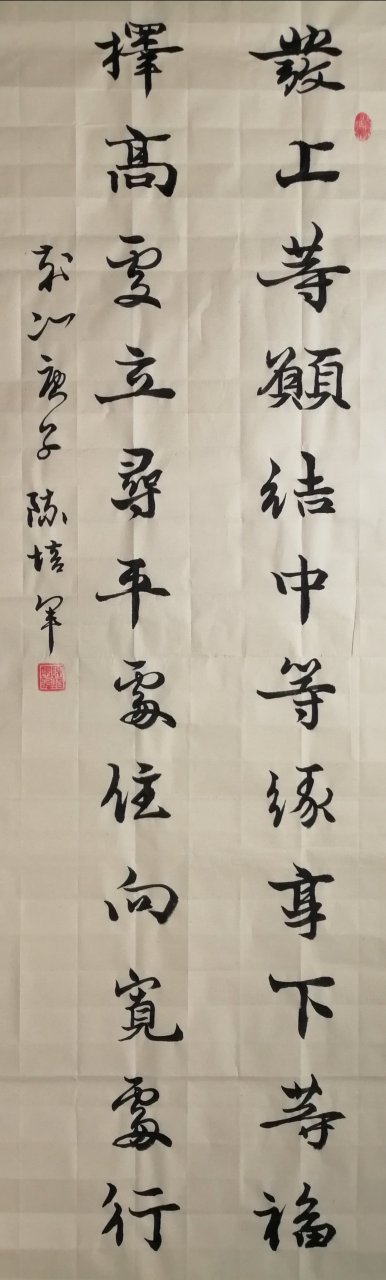 發上等願結中等緣享下等福
擇高處立尋平處住向寬處行
歲次庚子陈培军